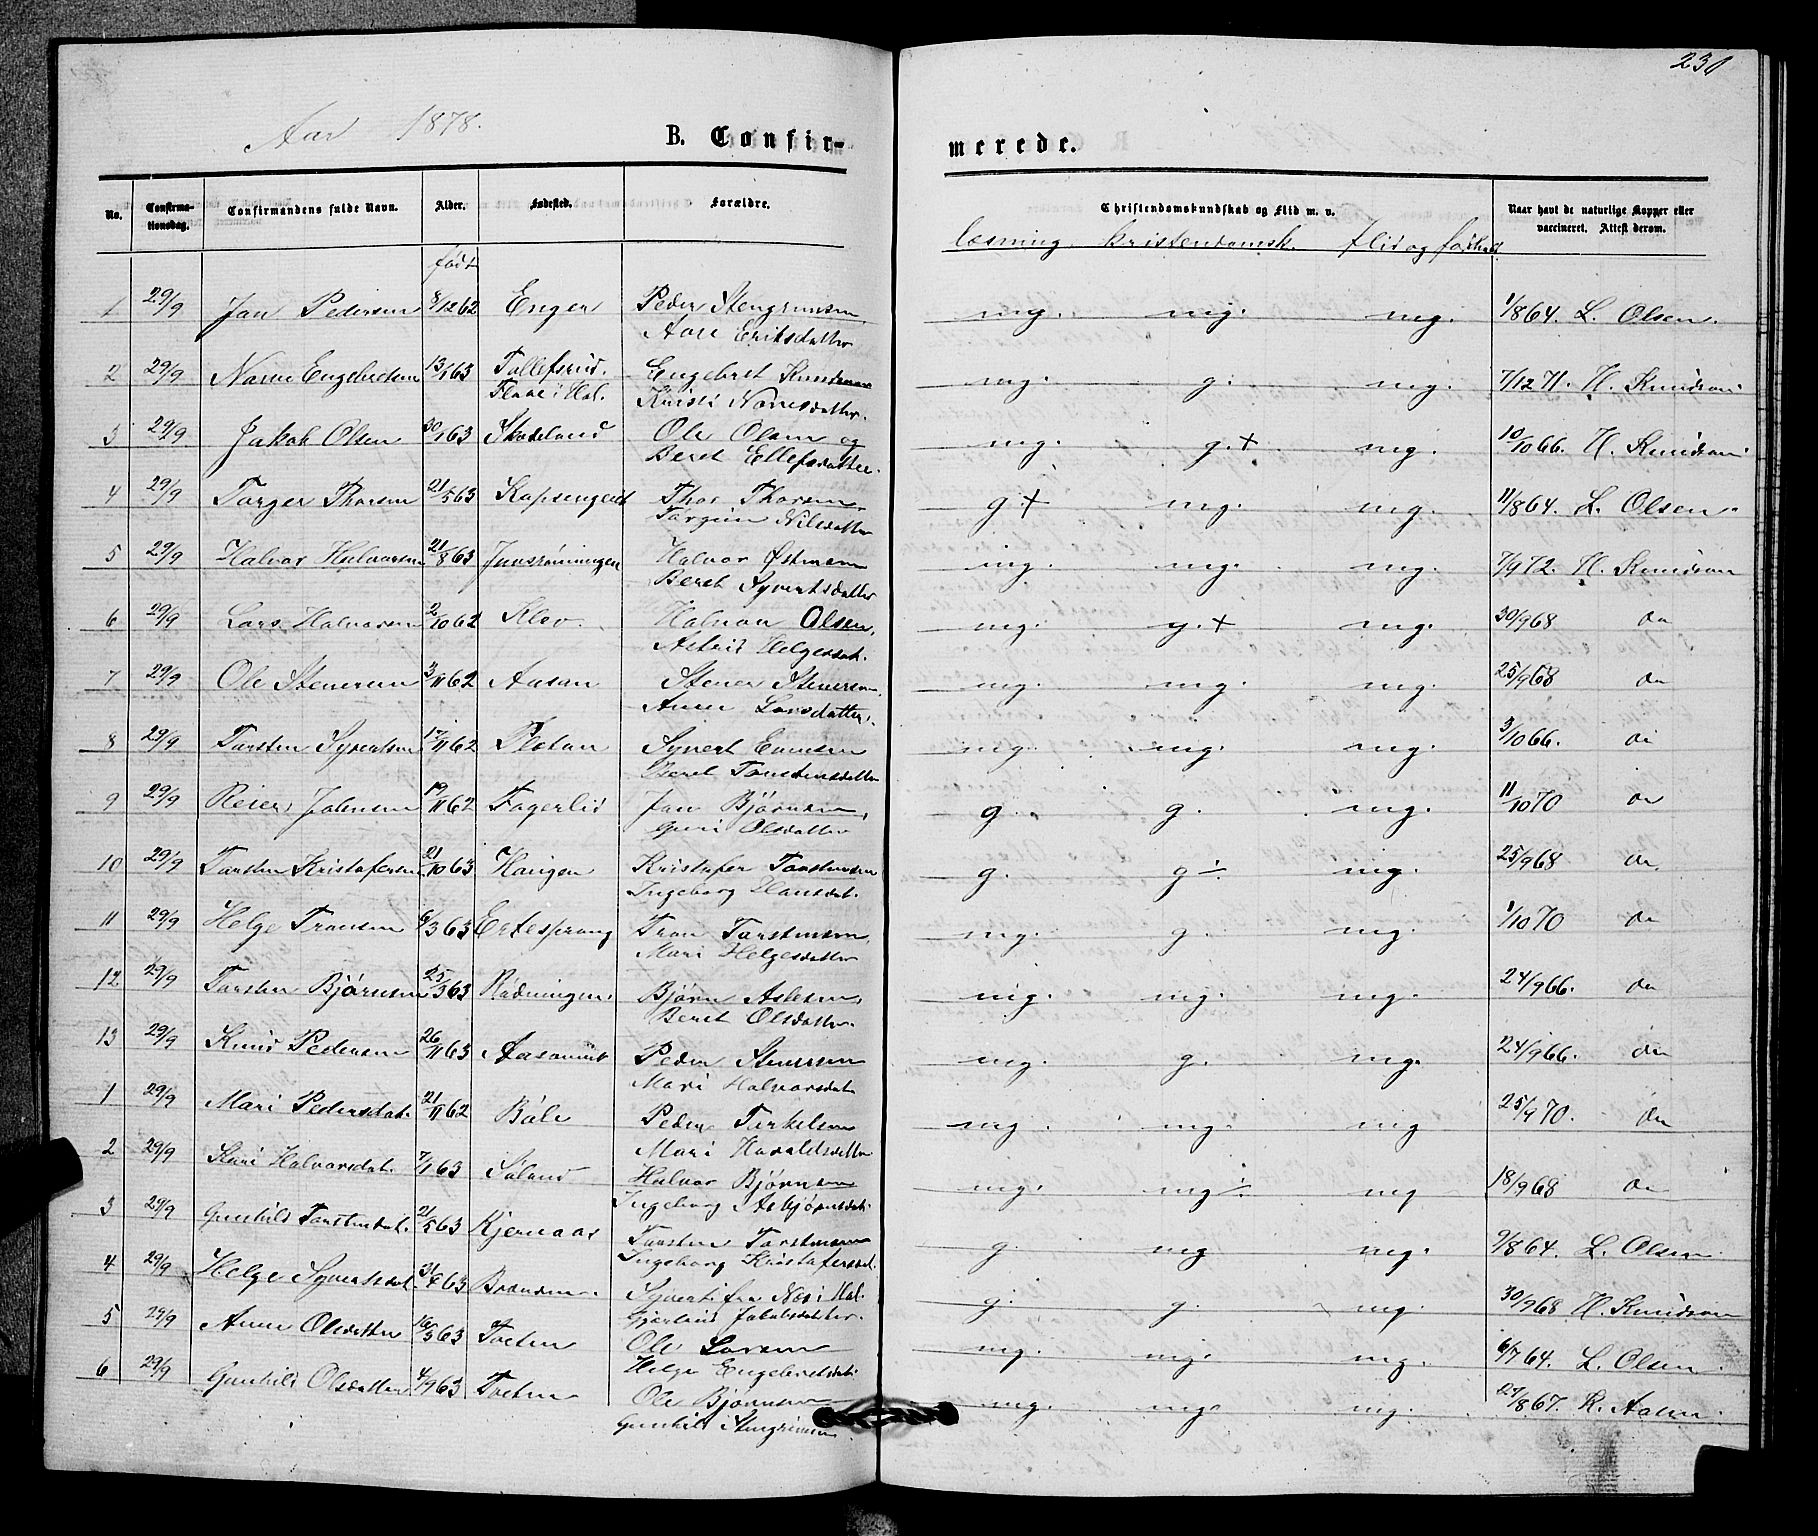 230
Aar 1878.
B. Confirmerede.
No. Confirmationsdag. Confirmandens fulde Navn. Alder. Fødested. Forældre. Christendomskundskab og Flid m. v. Naar havt de naturlige Kopper eller vaccineret. Attest derom.
født læsning. kristendomsk. flid og forhold
1 29/9 Jan Pedersen 8/12 62 Enger Peder Stengrimsen mg. mg. mg. 1/8 64. L. Olsen.
Aase Eriksdatter
2 29/9 Narve Engebretsen 13/1 63 Tollefsrud. Engebret Knudsen mg. g. mg. 7/12 71. H. Knudson
Flaae i Hal. Kristi Narvesdatter.
3 29/9 Jakob Olsen 30/1 63 Skodeland Ole Olsen og mg. g.+ mg. 10/10 66. H. Knudson
Beret Ellefsdatter.
4 29/9 Torger Thorsen 21/5 63 Thor Thorsen g+ mg. mg. 11/8 64. L. Olsen.
Torgun Nilsdatter
5 29/9 Halvor Halvorsen 21/8 63 Halvor Østmoen mg. mg. mg. 7/9 72. H. Knudson
Beret Syvertsdatter
6 29/9 Lars Halvorsen 2/10 62 Klev. Halvor Olsen, mg. g.+ mg. 30/9 68 do
Astrid Helgesdat.
7 29/9 Ole Stenersen 3/11 62 Aasan Stener Stenersen, mg. mg. mg. 25/9 68 do
Anne Larsdatter.
8 29/9 Torsten Syvertsen 17/11 62 Plotan Syvert Evensen mg. mg. mg. 3/10 66. do
Beret Torstensdatter
9 29/9 Reier Johnsen 19/11 62 Fagerlid Jon Bjørnsen, g. g. mg. 11/10 70 do
Guri Olsdatter
10 29/9 Torsten Kristofersen 21/10 63 Haugen Kristofer Torstensen g. g ÷ mg. 25/9 68 do
Ingeborg Hansdat.
11 29/9 Helge Tronsen 6/3 63 Ertesprang Tron Torstensen, mg. g. mg. 1/10 70 do
Mari Helgesdatter
12 29/9 Torsten Bjørnsen 25/3 63 Rødningen. Bjørn Aslesen, mg. mg. mg. 24/9 66. do
Beret Olsdatter.
13 29/9 Knud Pedersen 26/11 63 Peder Stenersen mg. g. mg. 24/9 66. do
Mari Halvorsdat
1 29/9 Mari Pedersdat. 21/11 62 Bøle Peder Terkelsen mg. mg. mg 25/9 70. do
Mari Haraldsdatter
2 29/9 Kari Halvorsdat. 7/1 63 Søland Halvor Bjørnsen mg. mg ÷ mg 18/9 68 do
Ingeborg Asbjørnsdat.
3 29/9 Gunhild Torstensdat. 21/5 63 Kjernaas Torsten Torstensen g. mg mg. 9/8 64. L. Olsen.
Ingeborg Kristofersdat.
4 29/9 Helge Syvertsdat. 63 Syvert fra Nes i Hal. g. g. mg. 30/9 68 H. Knudson
Gjertrud Jakobsdatter.
5 29/9 Anne Olsdatter 16/3 63 Toeten Ole Larsen mg. mg. mg. 6/7 64. L. Olsen
Helge Engebretsdat.
6 29/9 Gunhild Olsdatter 4/9 63 Toeten Ole Bjørnsen mg. mg. mg. 27/8 67. K. Aasen.
Gunhild Stengrimsen.